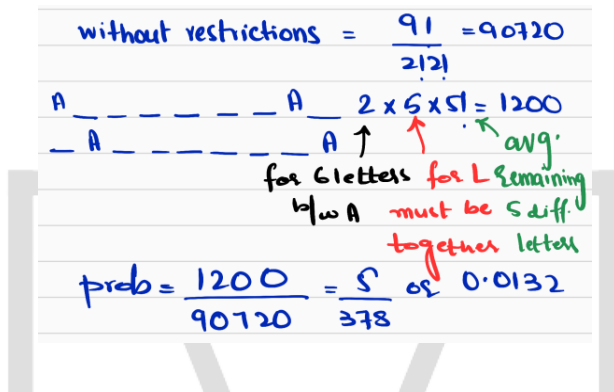 without restrictions = 9! / 2!2! = 90720
A _ _ _ _ _ _ A _ 2 x 5 x 5! = 1200
_ A _ _ _ _ _ _ A
for 6 letters b/w A
for L must be together
arg. Remaining 5 diff. letters
prob = 1200 / 90720 = 5 / 378 or 0.0132